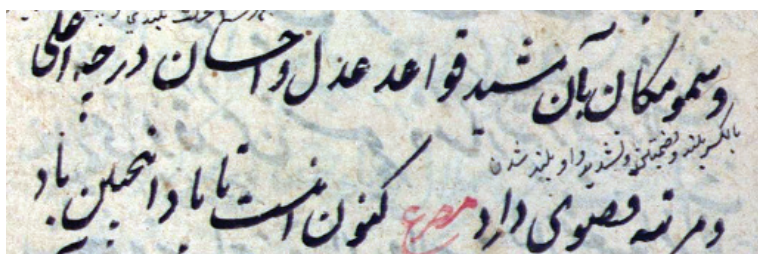 وسمو مکان بآن مشید قواعد عدل و احسان درجه اعلی
بالکسر بلند و بضمتین و تشدید واو بلند شدن
و مرتبه قصوی دارد مصرع کنون اینست تا باد اینچنین باد